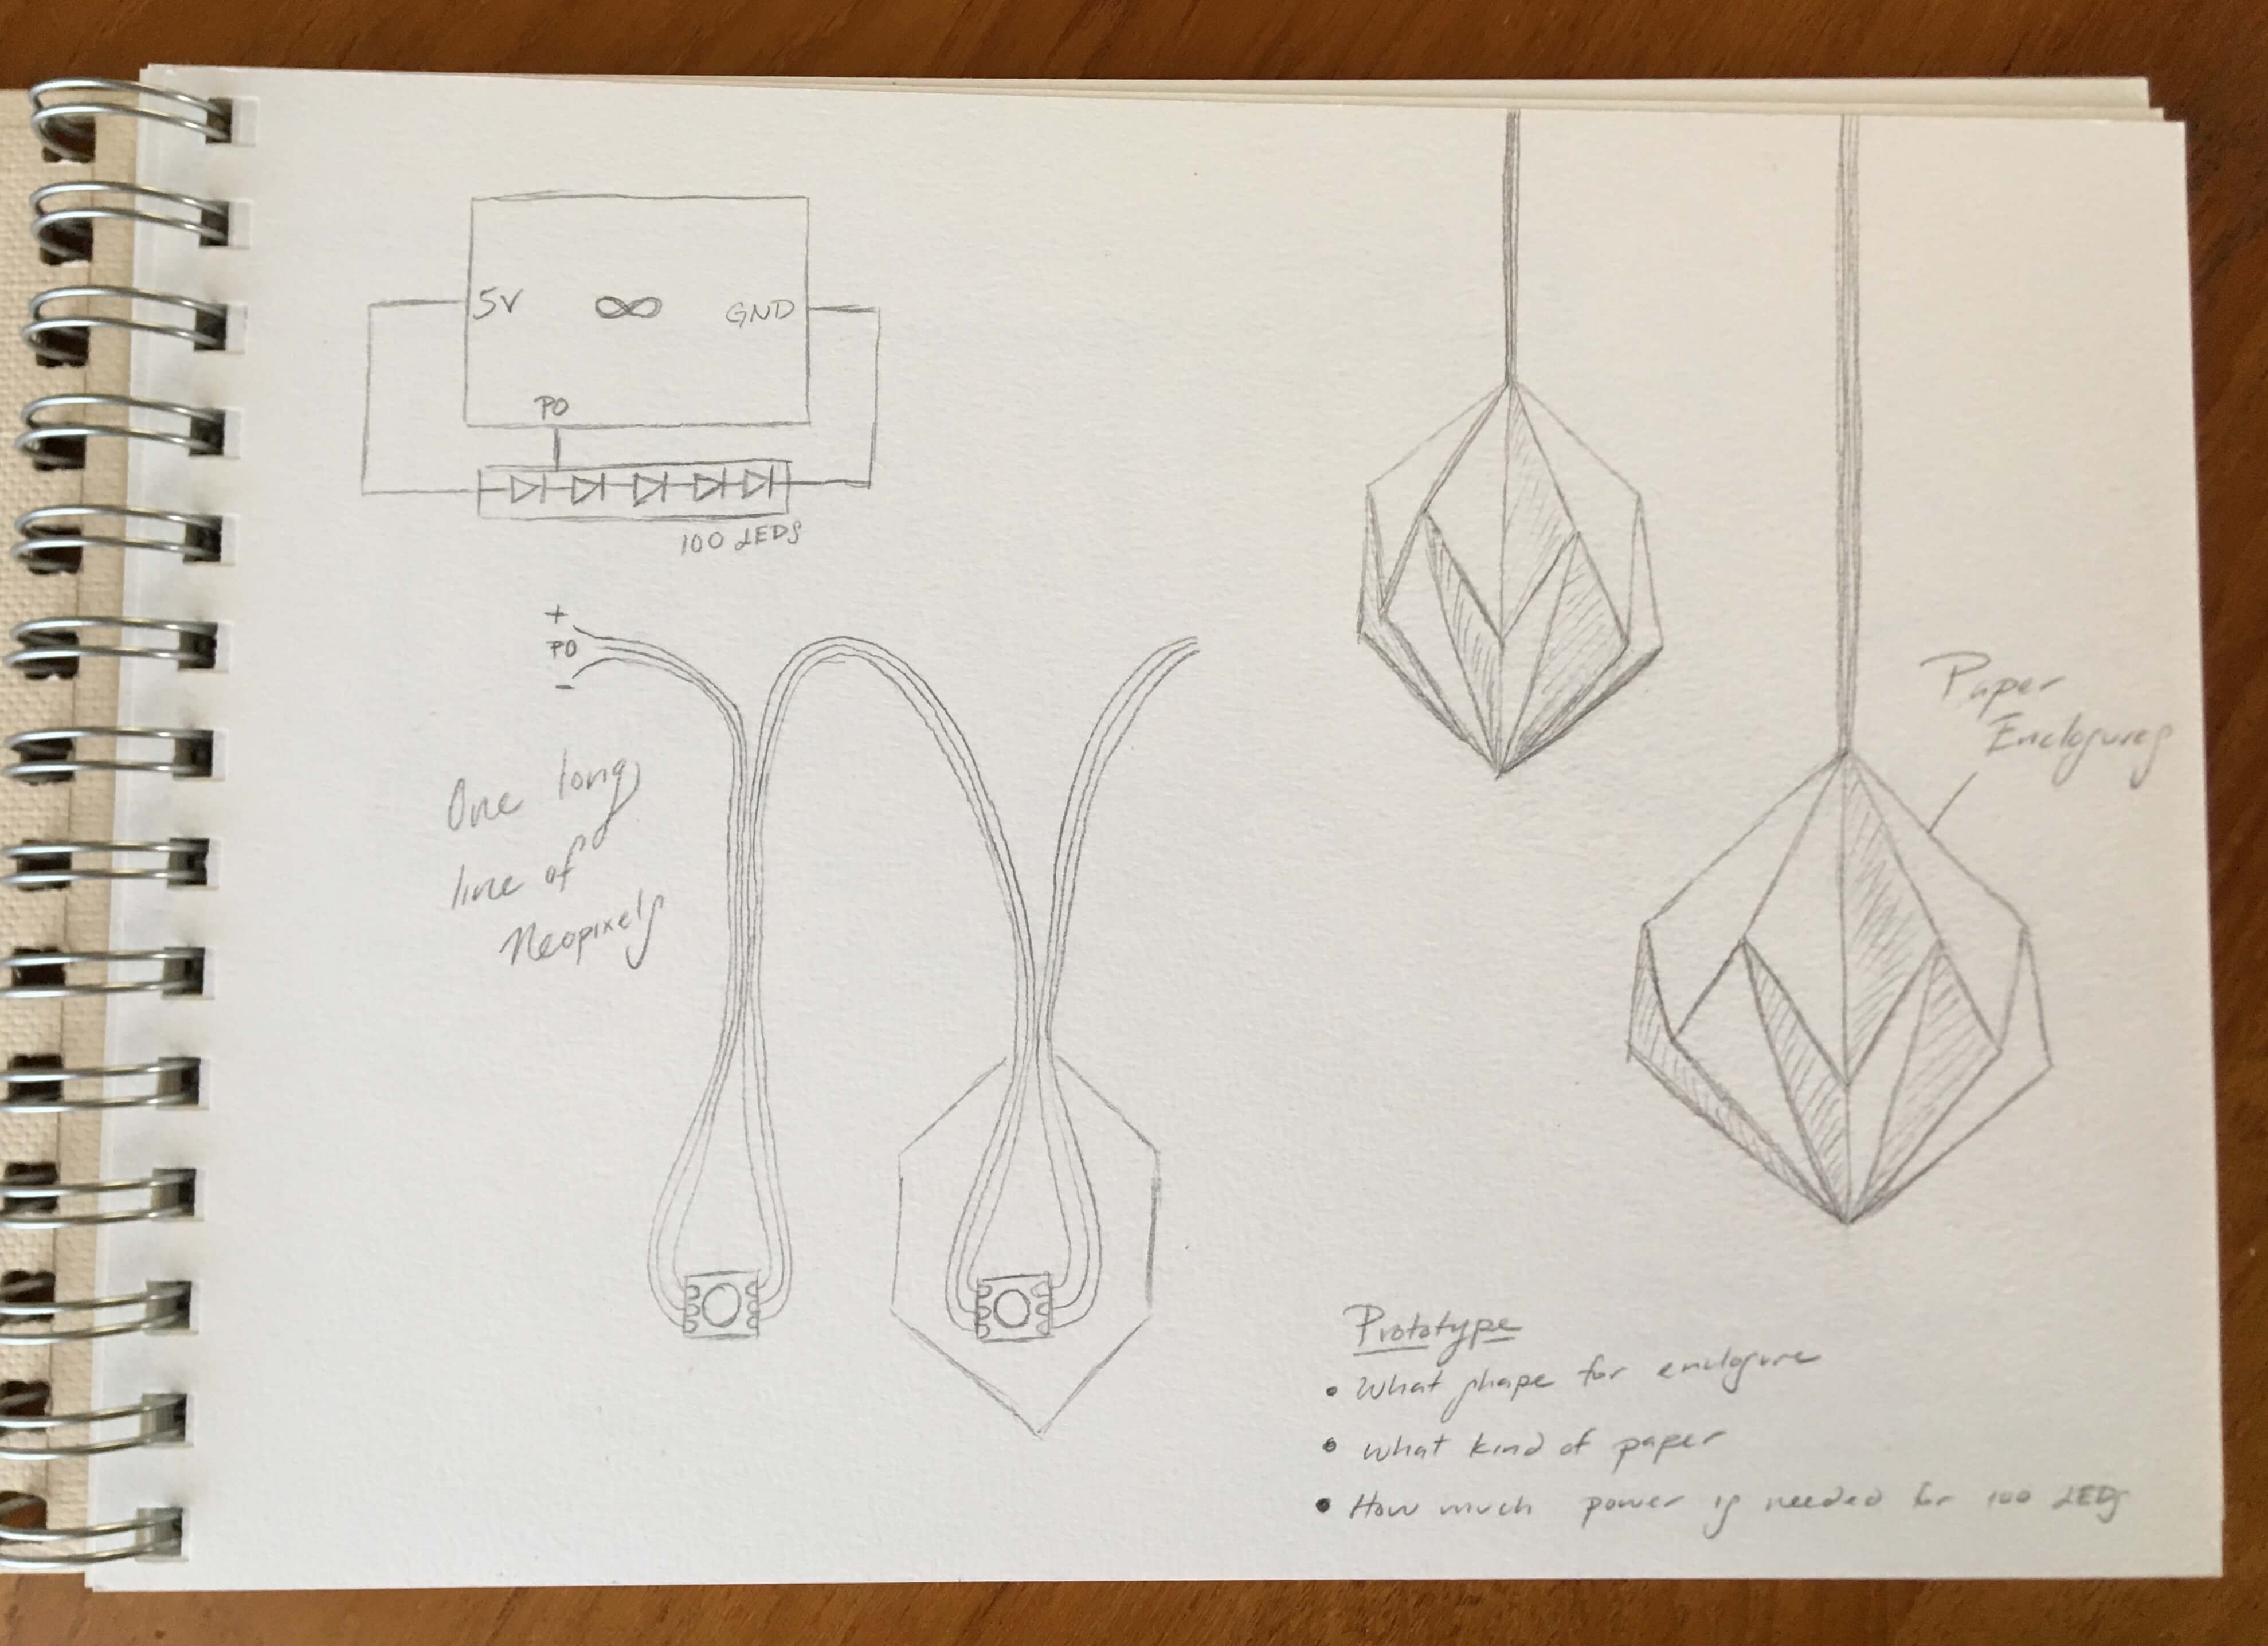 5V ∞ GND
PO
100 LEDs
+
PO
-
One long
line of
Neopixels
Paper
Enclosures
Prototype
• What shape for enclosure
• What kind of paper
• How much power is needed for 100 LEDs